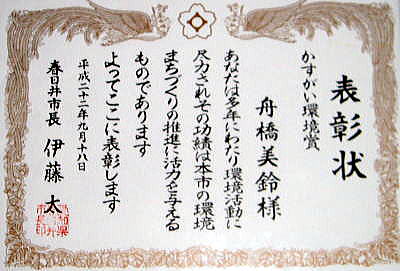 表彰状
かすがい環境賞
舟橋美鈴様
あなたは多年にわたり環境活動に
尽力されその功績は本市の環境
まちづくりの推進に活力を与える
ものであります
よってここに表彰します
平成二十二年九月十八日
春日井市長 伊藤太